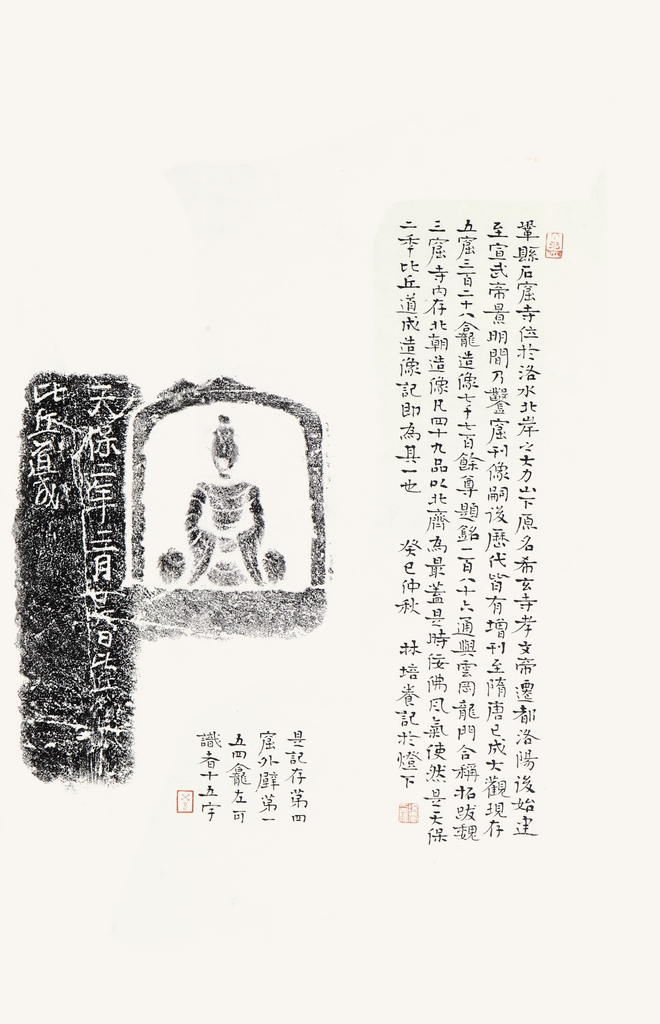 鞏縣石窟寺位於洛水北岸之大力山下原名希玄寺孝文帝遷都洛陽後始建
至宣武帝景明間乃鑿窟刊像嗣後歷代皆有增刊至隋唐已成大觀現存
五窟三百二十八龕造像七千七百餘尊題銘一百八十六通與雲岡龍門合稱拓跋魏
三窟寺內存北朝造像凡四十九品以北齊為最蓋是時佞佛風氣使然是天保
二年比丘道成造像記即為其一也 癸巳仲秋 林培養記於燈下
是記存第四
窟外壁第一
五四龕左可
識者十五字
天保二年三月廿日
比丘道成